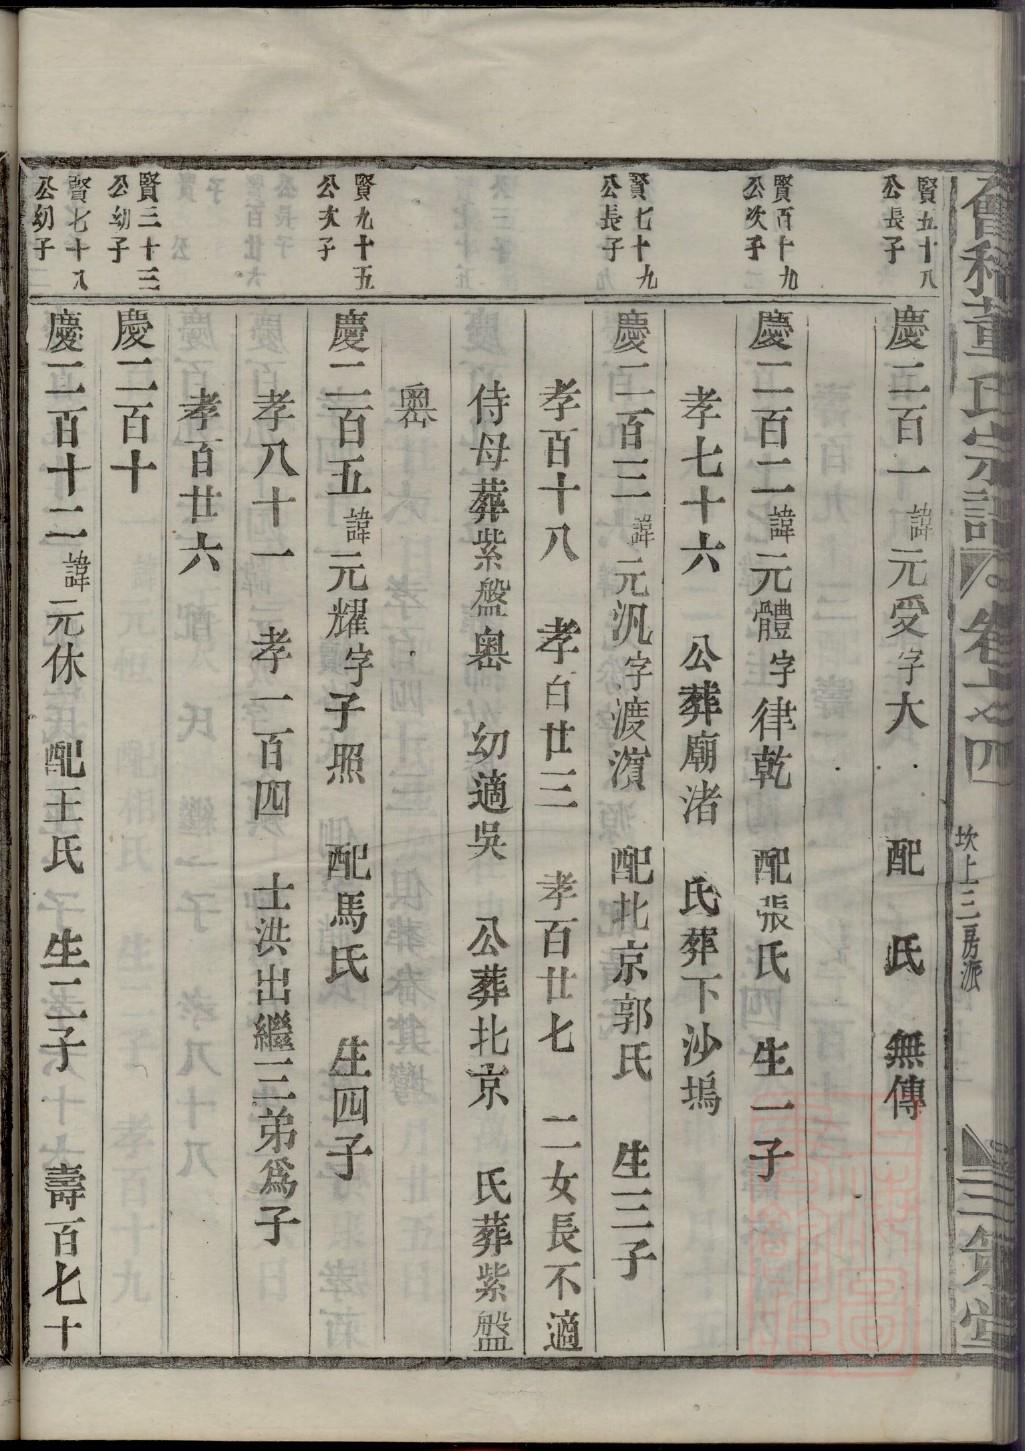 會稽董氏宗譜 卷之四 坎上三房派 三策堂
賢五十八
公長子
慶二百一 諱元受字大 配 氏 無傳
賢百十九
公次子
慶二百二 諱元體字律乾 配張氏 生一子
孝七十六 公葬廟渚 氏葬下沙塢
賢七十九
公長子
慶二百三 諱元汎字渡濱 配北京郭氏 生三子
孝百十八 孝百廿三 孝百廿七 二女長不適
侍母葬紫盤嶴 幼適吳 公葬北京 氏葬紫盤
嶴
賢九十五
公次子
慶二百五 諱元耀字子照 配馬氏 生四子
孝八十一 孝一百四 士洪出繼三弟爲子
孝百廿六
賢三十三
公幼子
慶二百十
賢七十八
公幼子
慶二百十二 諱元休 配王氏 生二子 壽百七十